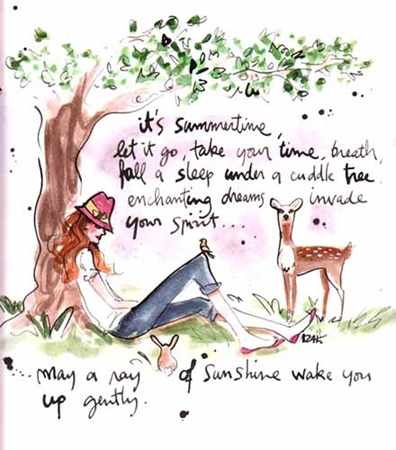 it's summertime,
let it go, take your time, breath,
fall a sleep under a cuddle tree.
enchanting dreams invade
your spirit....
IZAK
...may a ray of sunshine wake you
up gently.